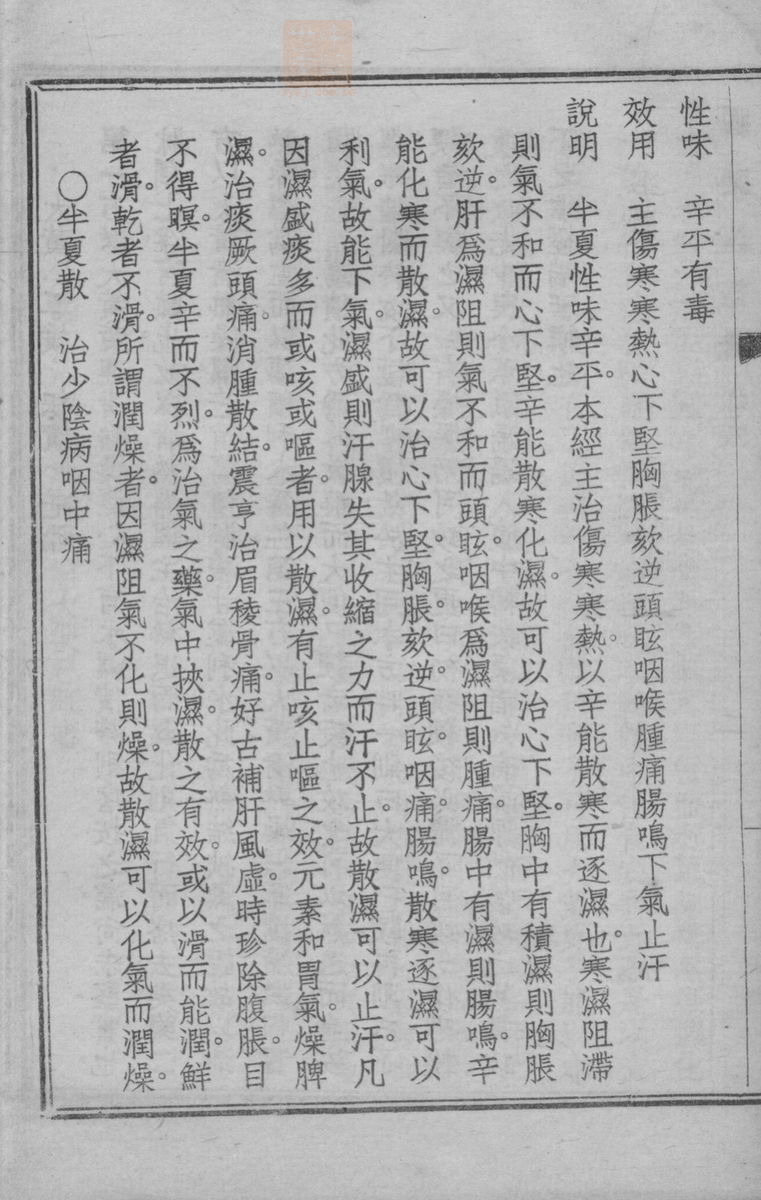 性味　辛平有毒
效用　主傷寒寒熱心下堅胸脹欬逆頭眩咽喉腫痛腸鳴下氣止汗
說明　半夏性味辛平。本經主治傷寒寒熱。以辛能散寒而逐濕也。寒濕阻滯
則氣不和而心下堅。辛能散寒化濕。故可以治心下堅。胸中有積濕則胸脹
欬逆。肝爲濕阻則氣不和而頭眩。咽喉爲濕阻則腫痛。腸中有濕則腸鳴。辛
能化寒而散濕。故可以治心下堅。胸脹。欬逆。頭眩。咽痛。腸鳴。散寒逐濕可以
利氣。故能下氣。濕盛則汗腺失其收縮之力而汗不止。故散濕可以止汗。凡
因濕盛痰多而或咳或嘔者。用以散濕。有止咳止嘔之效。元素和胃氣。燥脾
濕。治痰厥頭痛。消腫散結。震亨治眉稜骨痛。好古補肝風虛。時珍除腹脹。目
不得瞑。半夏辛而不烈。爲治氣之藥。氣中挾濕。散之有效。或以滑而能潤。鮮
者滑。乾者不滑。所謂潤燥者。因濕阻氣不化則燥。故散濕可以化氣而潤燥。
○半夏散　治少陰病咽中痛